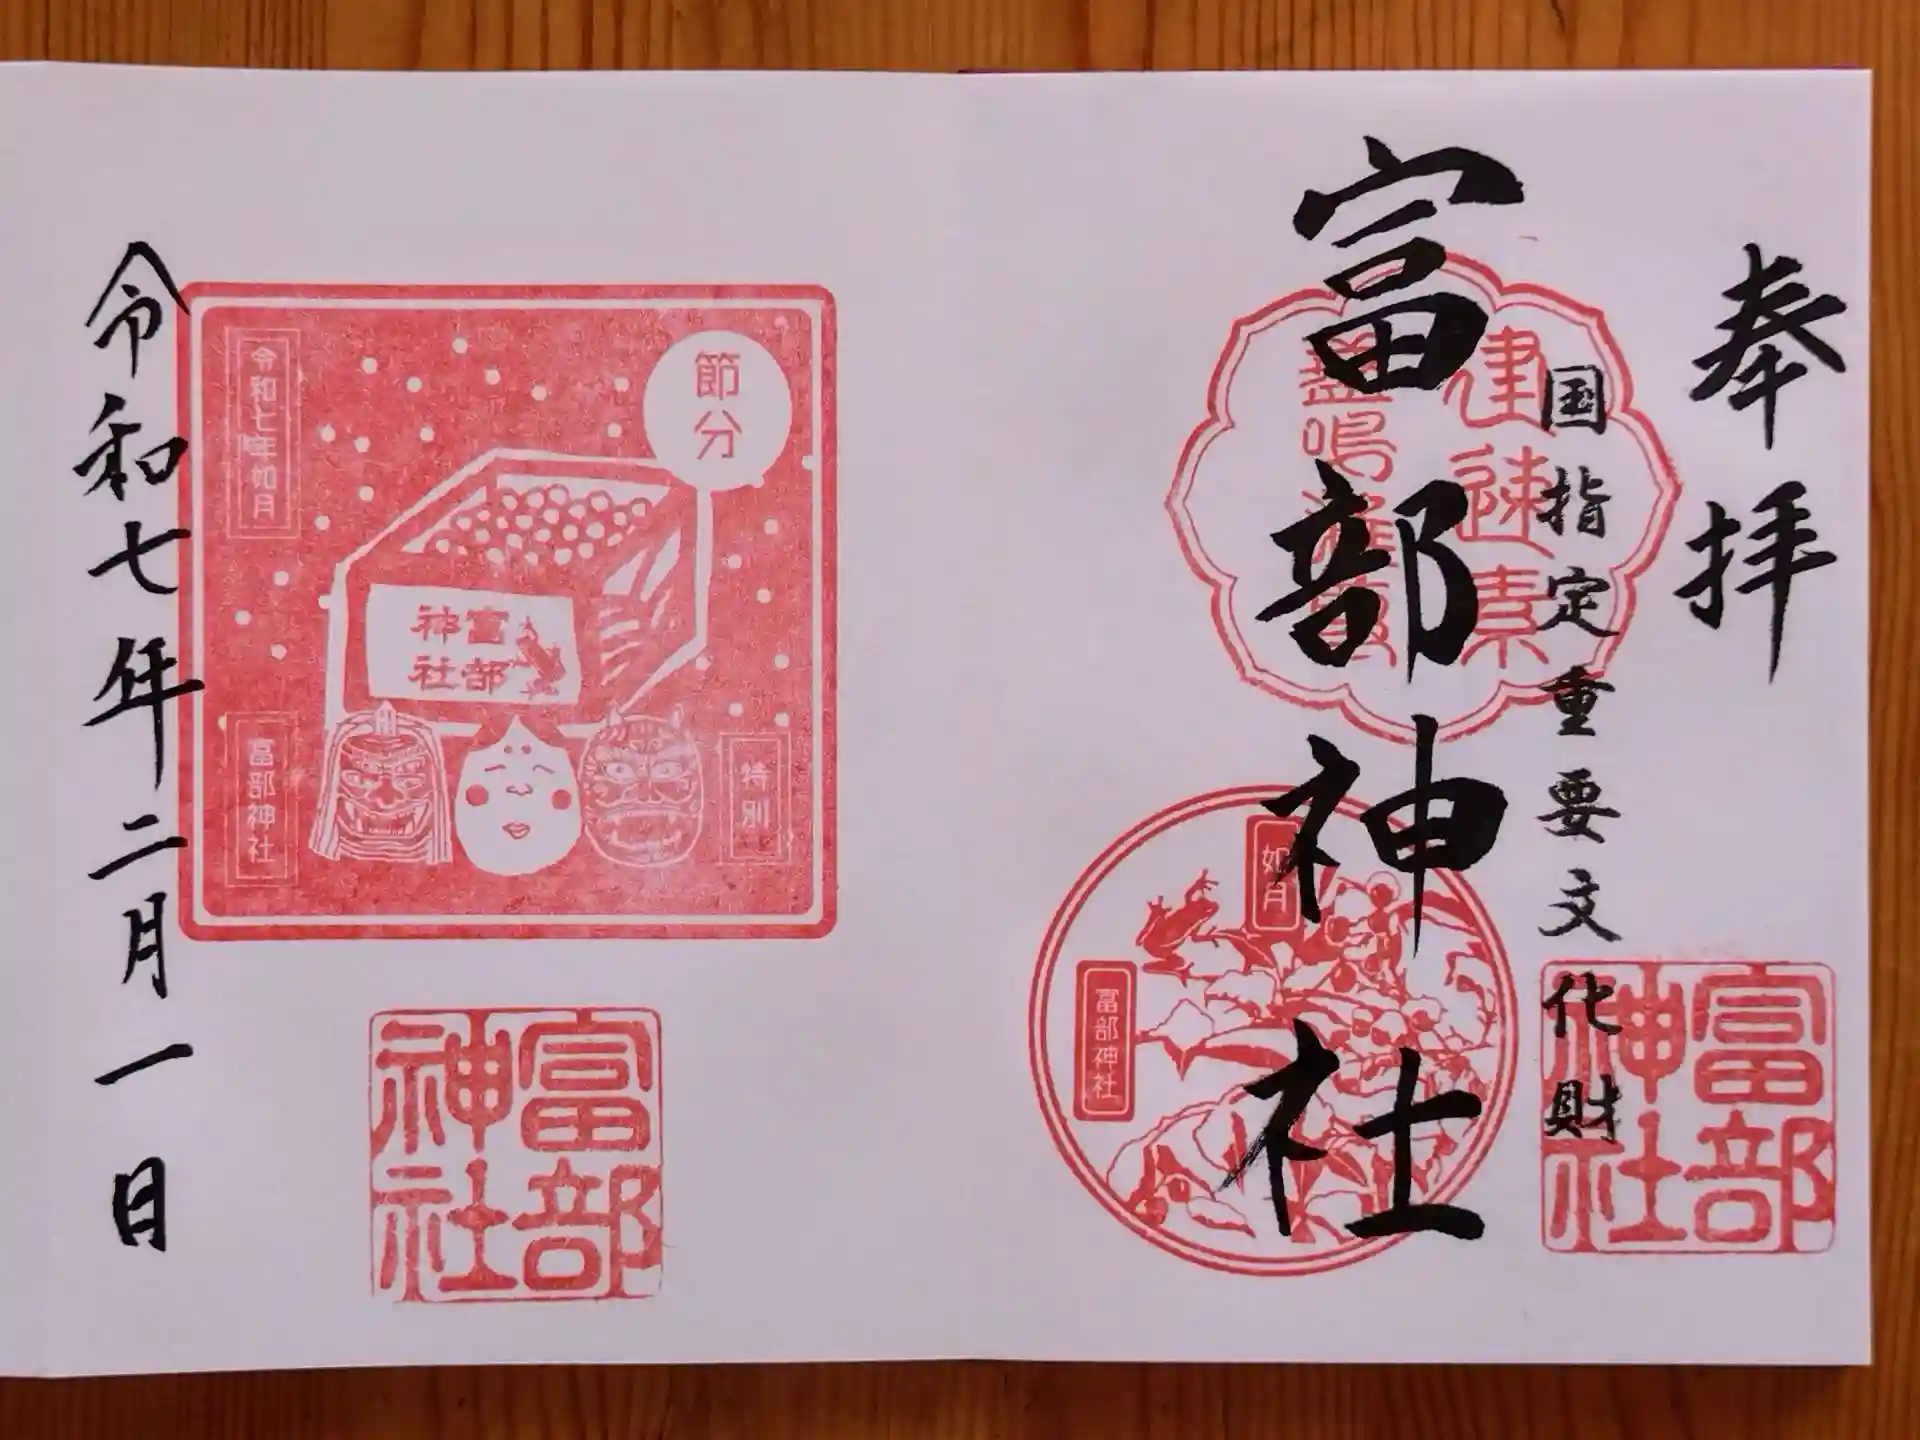 奉拝
国指定重要文化財
富部神社
建速素
盞嗚
如月
富部神社
富部
神社
令和七年二月一日
節分
令和七年如月
富部
神社
富部神社
特別
富部
神社